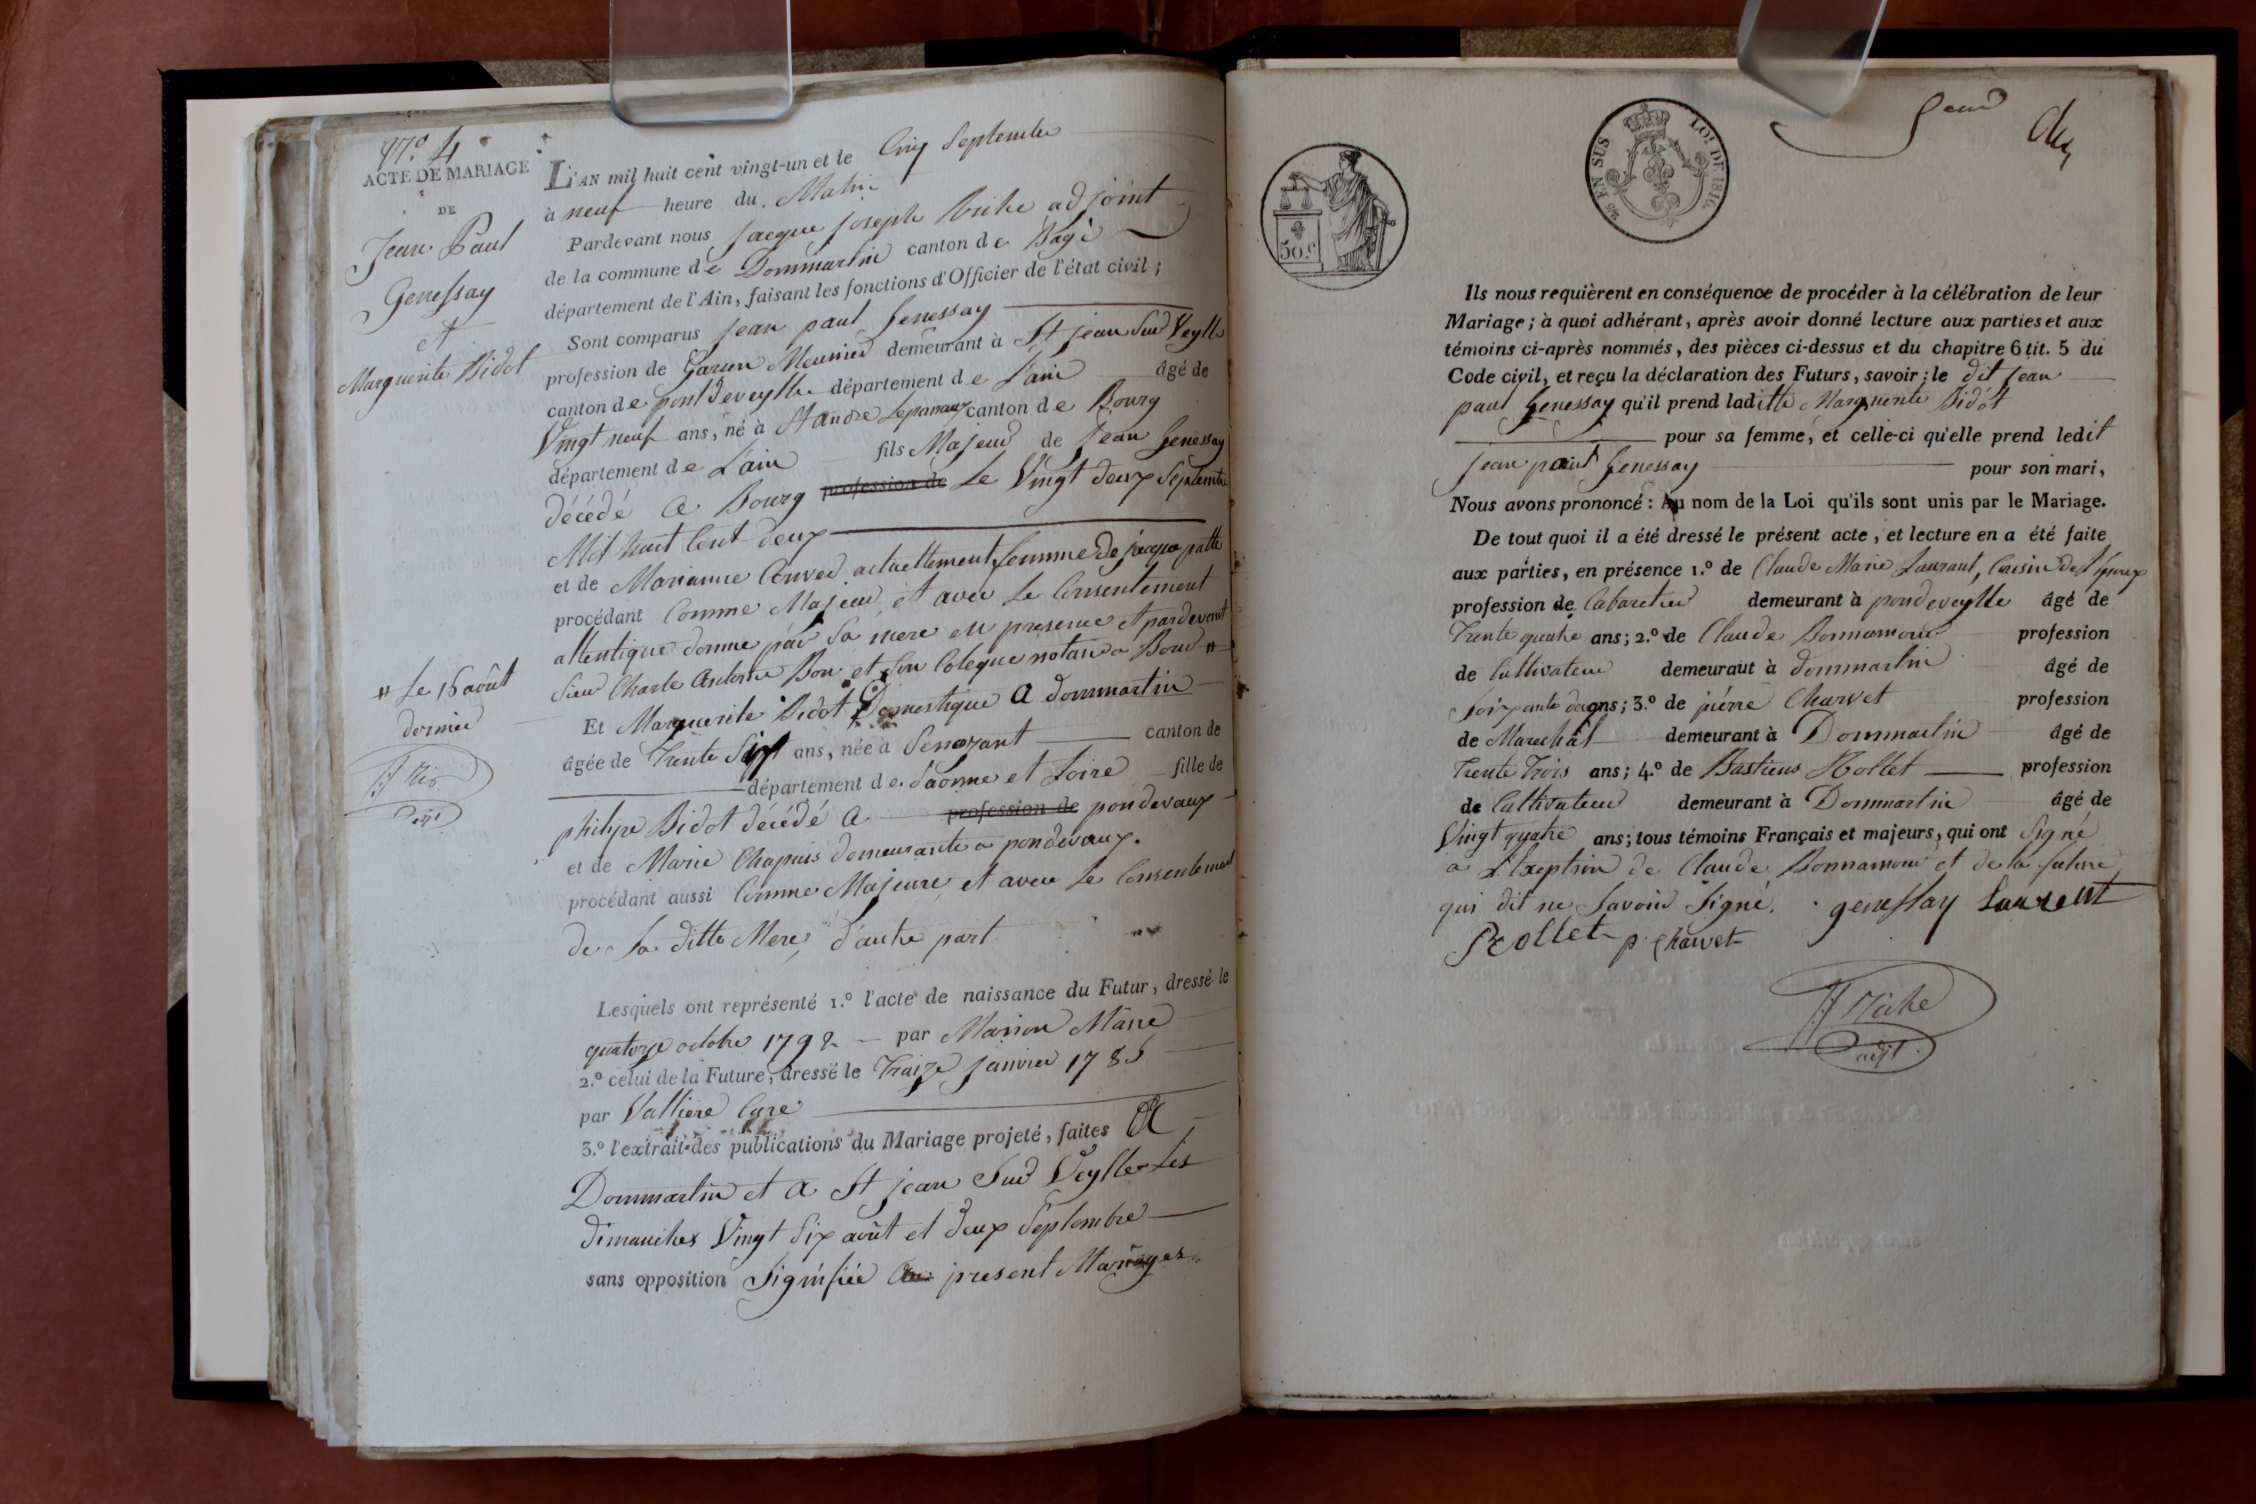 N.° 4
ACTE DE MARIAGE
DE
Jean Paul
Genessay
et
Marguerite Bidot
# Le 16 août
dernier
adjt
L'AN mil huit cent vingt-un et le Cinq Septembre
à neuf heure du Matin
Pardevant nous Jacque Joseph Niche adjoint
de la commune de Dommartin canton de Bagé
département de l'Ain, faisant les fonctions d'Officier de l'état civil;
Sont comparus jean paul Genessay
profession de Garcon Meunier demeurant à St jean Sur Veylle
canton de pont deveylle département de L'ain âgé de
Vingt neuf ans, né à St andre Lepanoux canton de Bourg
département de L'ain fils Majeur de Jean Genessay
décédé a Bourg profession de Le Vingt deux Septembre
Mil huit Cent deux
et de Marianne Convert actuellement femme De jacque patte
procédant Comme Majeur, et avec Le Consentement
attentique donne par Sa mere en presence et pardevant
Sieur Charle Antoine Bon et Son Coleque notar a Bour #
Et Marguerite Bidot Domestique A dommartin
âgée de Trente Sixt ans, née à Senozant canton de
département de Saonne et Loire fille de
philipe Bidot décédé A profession de pondevaux
et de Marie Chapuis demeurante a pondevaux.
procédant aussi Comme Majeure, et avec Le Consentement
de Sa ditte Mere, d'autre part
Lesquels ont représenté 1.° l'acte de naissance du Futur, dressé le
quatorze octobre 1792 par Marion Maire
2.° celui de la Future, dressé le Traize Janvier 1785
par Valliere Cure
3.° l'extrait des publications du Mariage projeté, faites A
Dommartin et A St jean Sur Veylle Les
dimanches Vingt Six août et deux Septembre
sans opposition Signifiée Au present Mariages
50.c
25 EN SUS
LOI DE 1816.
Ils nous requièrent en conséquence de procéder à la célébration de leur
Mariage; à quoi adhérant, après avoir donné lecture aux parties et aux
témoins ci-après nommés, des pièces ci-dessus et du chapitre 6 tit. 5 du
Code civil, et reçu la déclaration des Futurs, savoir; le dit Jean
paul Genessay qu'il prend laditte Marguerite Bidot
pour sa femme, et celle-ci qu'elle prend ledit
Jean paul Genessay pour son mari,
Nous avons prononcé: Au nom de la Loi qu'ils sont unis par le Mariage.
De tout quoi il a été dressé le présent acte, et lecture en a été faite
aux parties, en présence 1.° de Claude Marie Laurant, Cousin de L'époux
profession de Cabaretier demeurant à pondeveylle âgé de
Trente quatre ans; 2.° de Claude Bonnamour profession
de Cultivateur demeurant à dommartin âgé de
Soixante ans; 3.° de pierre Charvet profession
de Marechal demeurant à Dommartin âgé de
Trente Trois ans; 4.° de Bastiens Rollet profession
de Cultivateur demeurant à Dommartin âgé de
Vingt quatre ans; tous témoins Français et majeurs, qui ont Signé
a L'Exeption de Claude Bonnamour et de la future
qui dit ne Savoir Signé. genessay Laurent
Rollet p. charvet
Niche
adjt.